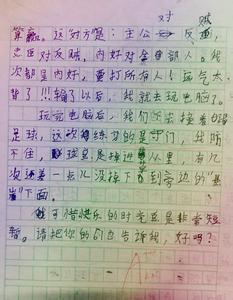 对 贼
赢。这对方是：主公 反，
忠臣对反贼，内奸对全部人。我
次都是内奸，要打所有人，运气太
背了!!!输了以后，我就去玩电脑了。
玩完电脑后，我们又接着踢
足球，这次练习的是守门，我防
不住，球总是掉进 从里，有几
次还差一点儿没掉下 到旁边的"悬
崖"下面。
可惜快乐的时光总是非常短
暂。请把你的6.1告诉我，好吗？